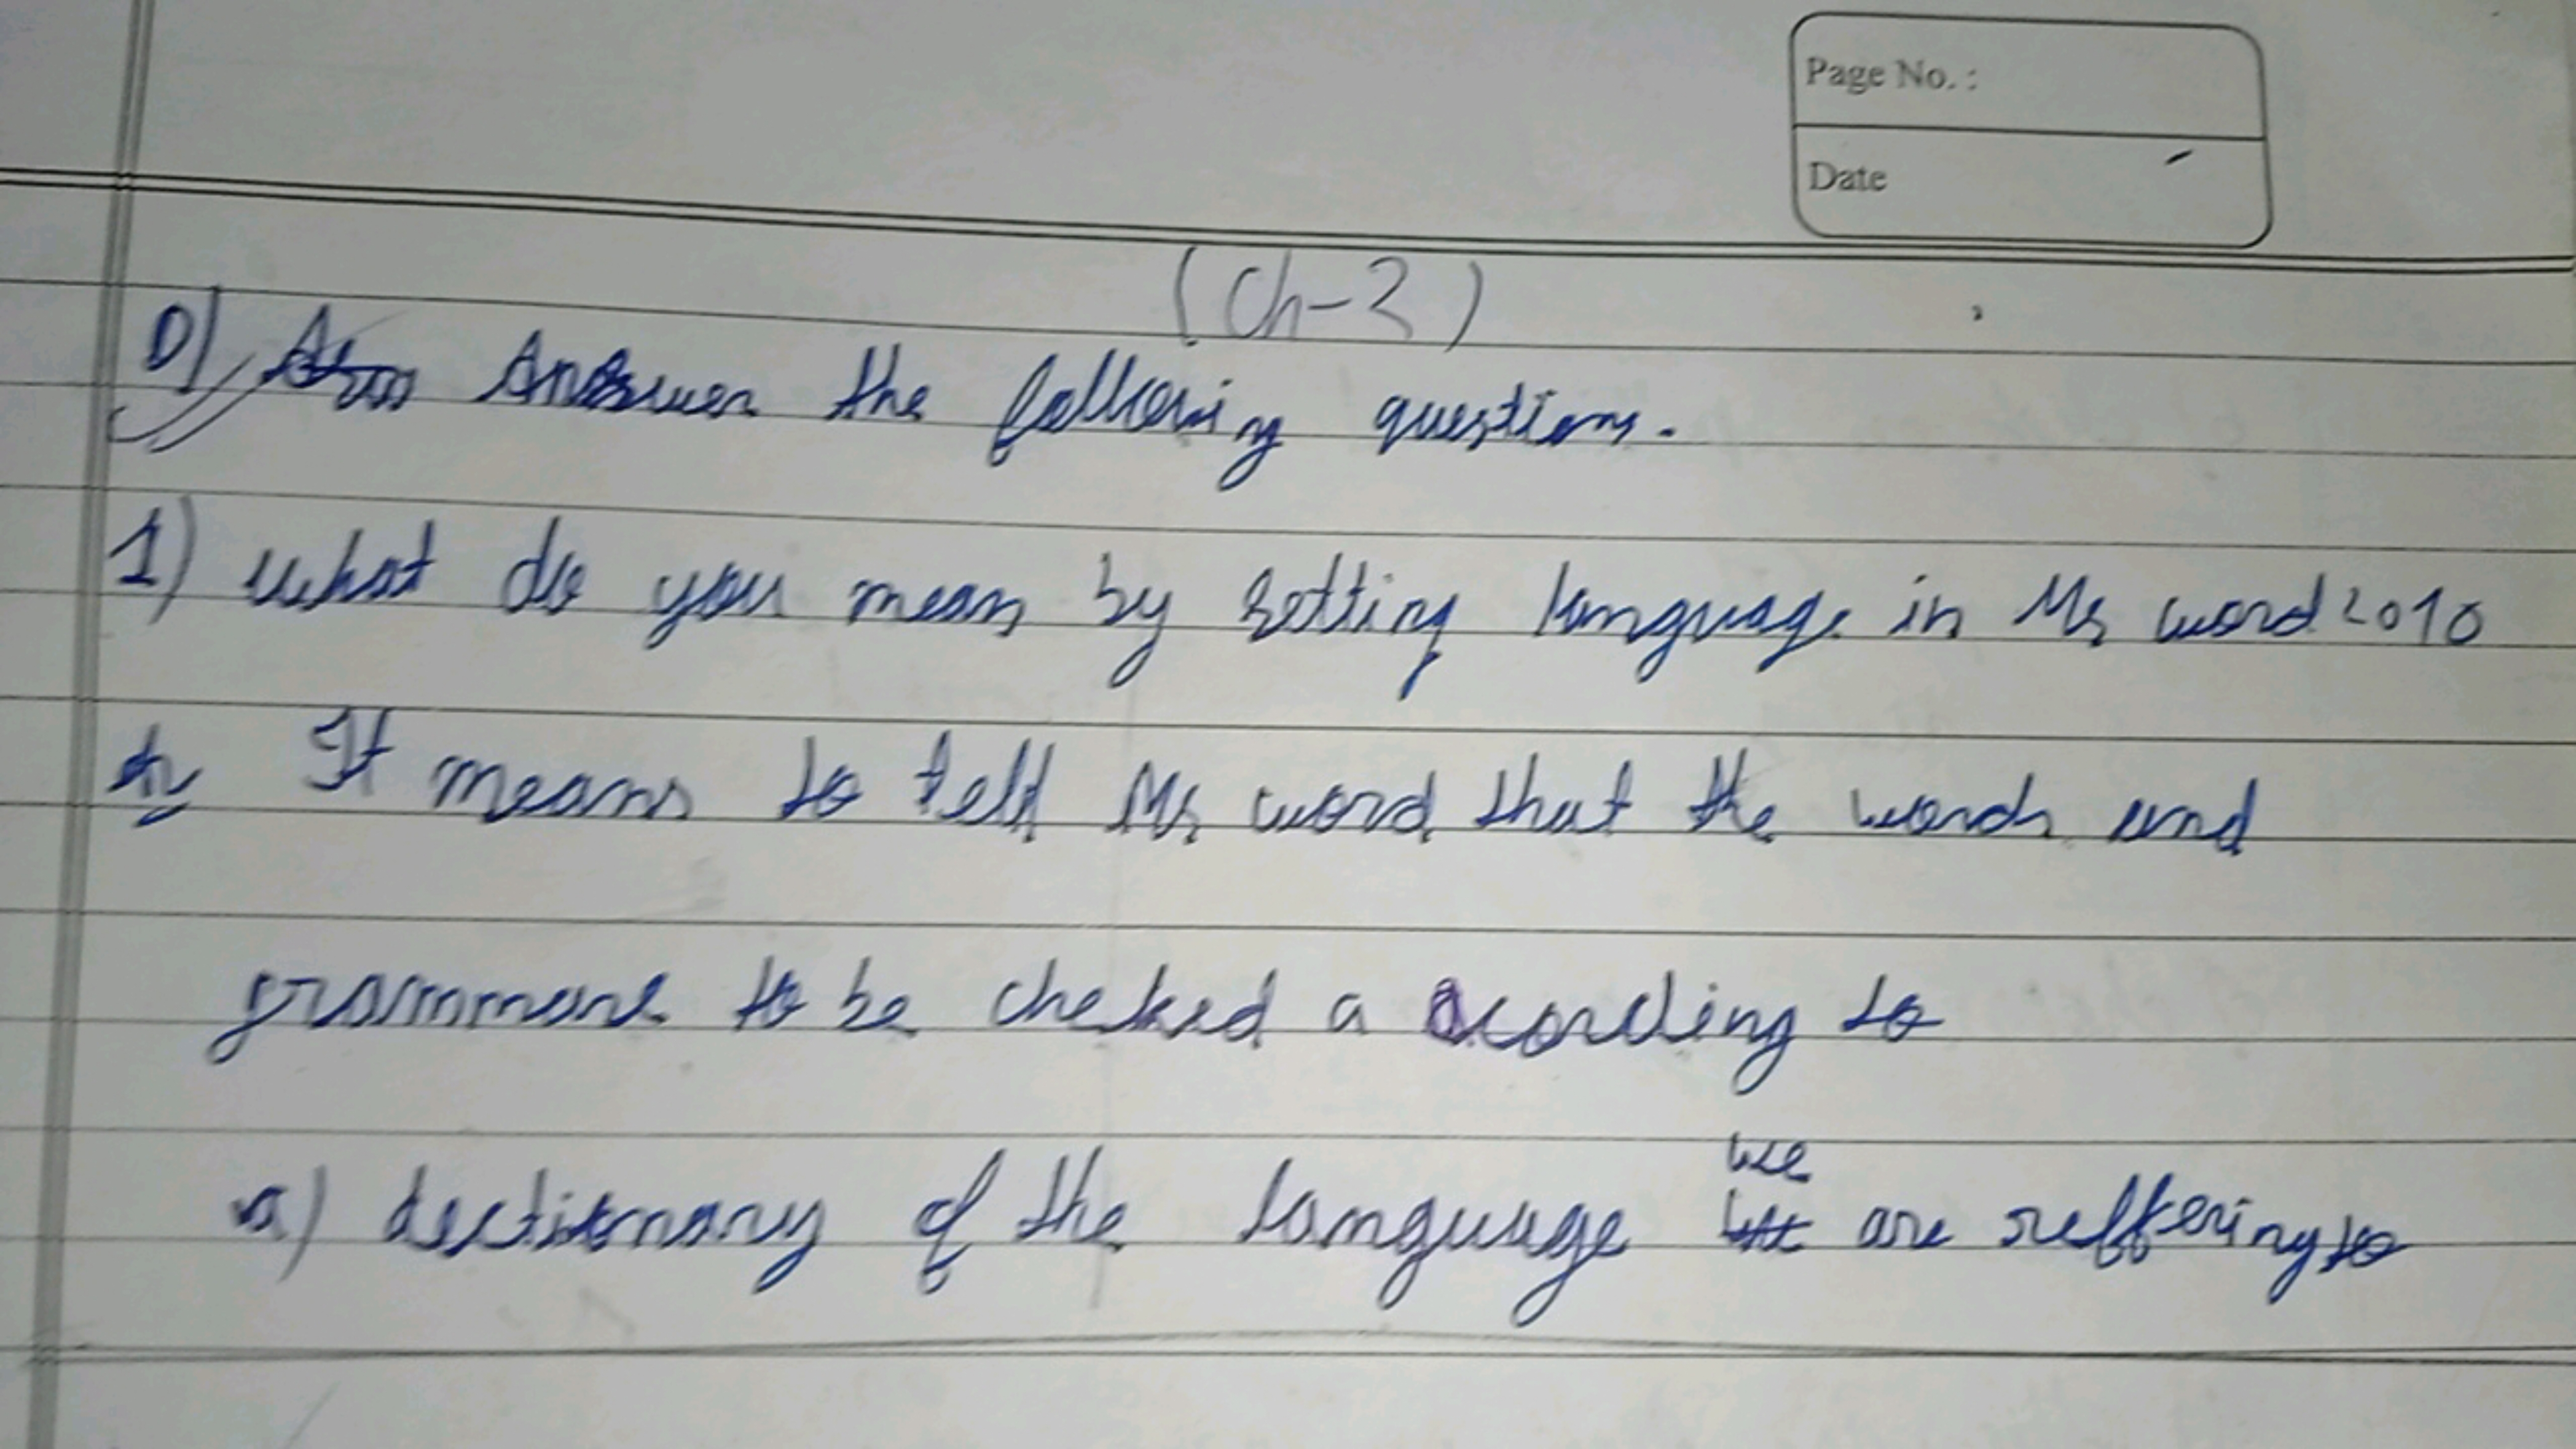 Page No. :
Date
(Ch-2)
D) Answer the following questions.
1) what do you mean by setting language in Ms word 2010
It means to tell Ms word that the words and
grammare to be cheked a acording to
a) dectionary of the language we are reffering to